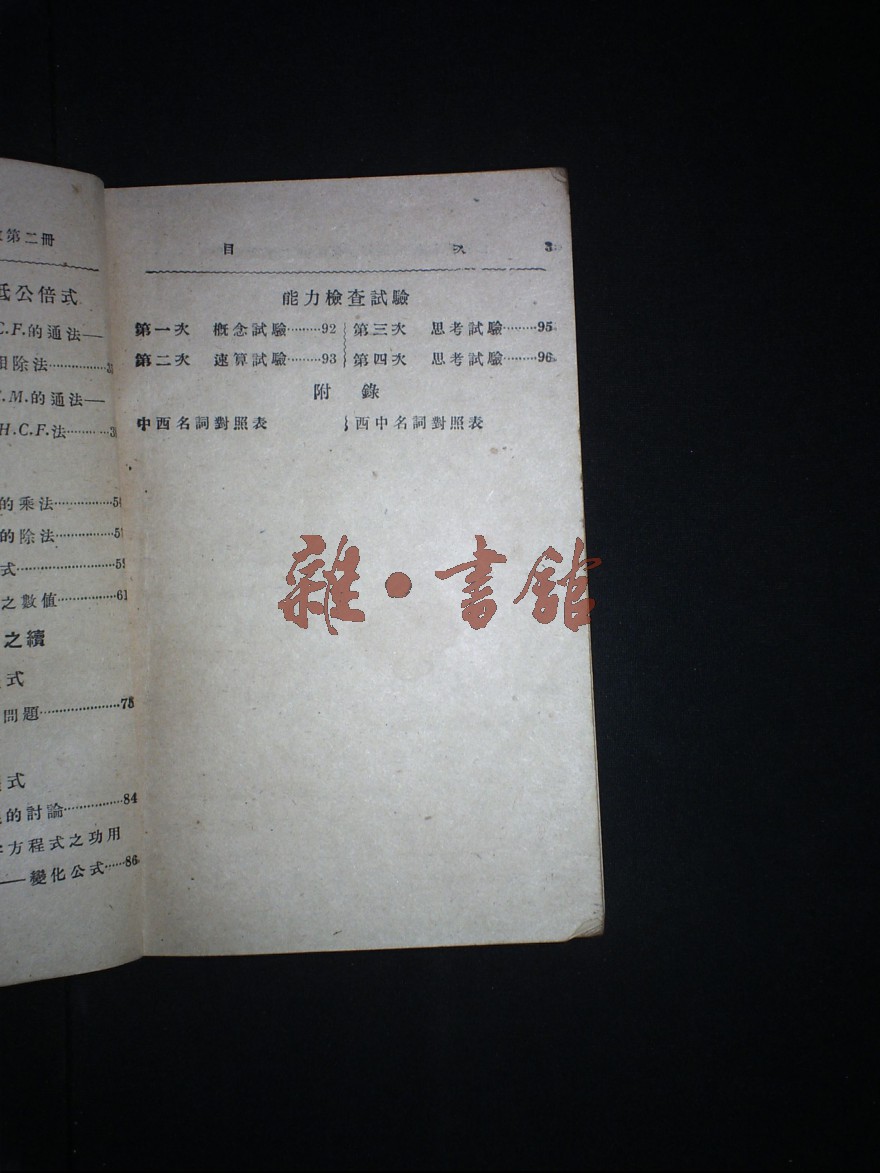 第二冊
低公倍式
C.F.的通法——
相除法
.M.的通法——
H.C.F.法
的乘法
的除法
式……59
之數值……61
之續
式
問題……78
式
的討論……84
方程式之功用
——變化公式……86
目 次 3
能力檢查試驗
第一次 概念試驗……92 第三次 思考試驗……95
第二次 速算試驗……93 第四次 思考試驗……96
附 錄
中西名詞對照表 西中名詞對照表
雜·書館